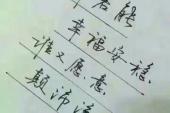 若能
幸福安稳
谁又愿意
颠沛流